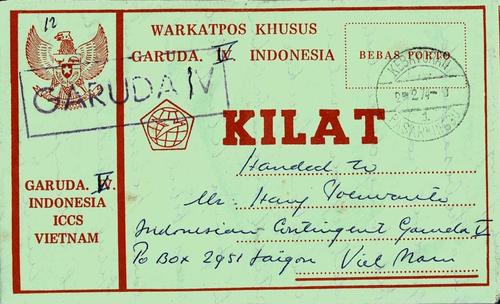 12
WARKATPOS KHUSUS
GARUDA. V INDONESIA
BEBAS PORTO
GARUDA IV
KILAT
GARUDA. V.
INDONESIA
ICCS
VIETNAM
Handed to
Mr. Hany
Indonesian Contingent Garuda V
Po Box 2951 Saigon Viet Nam